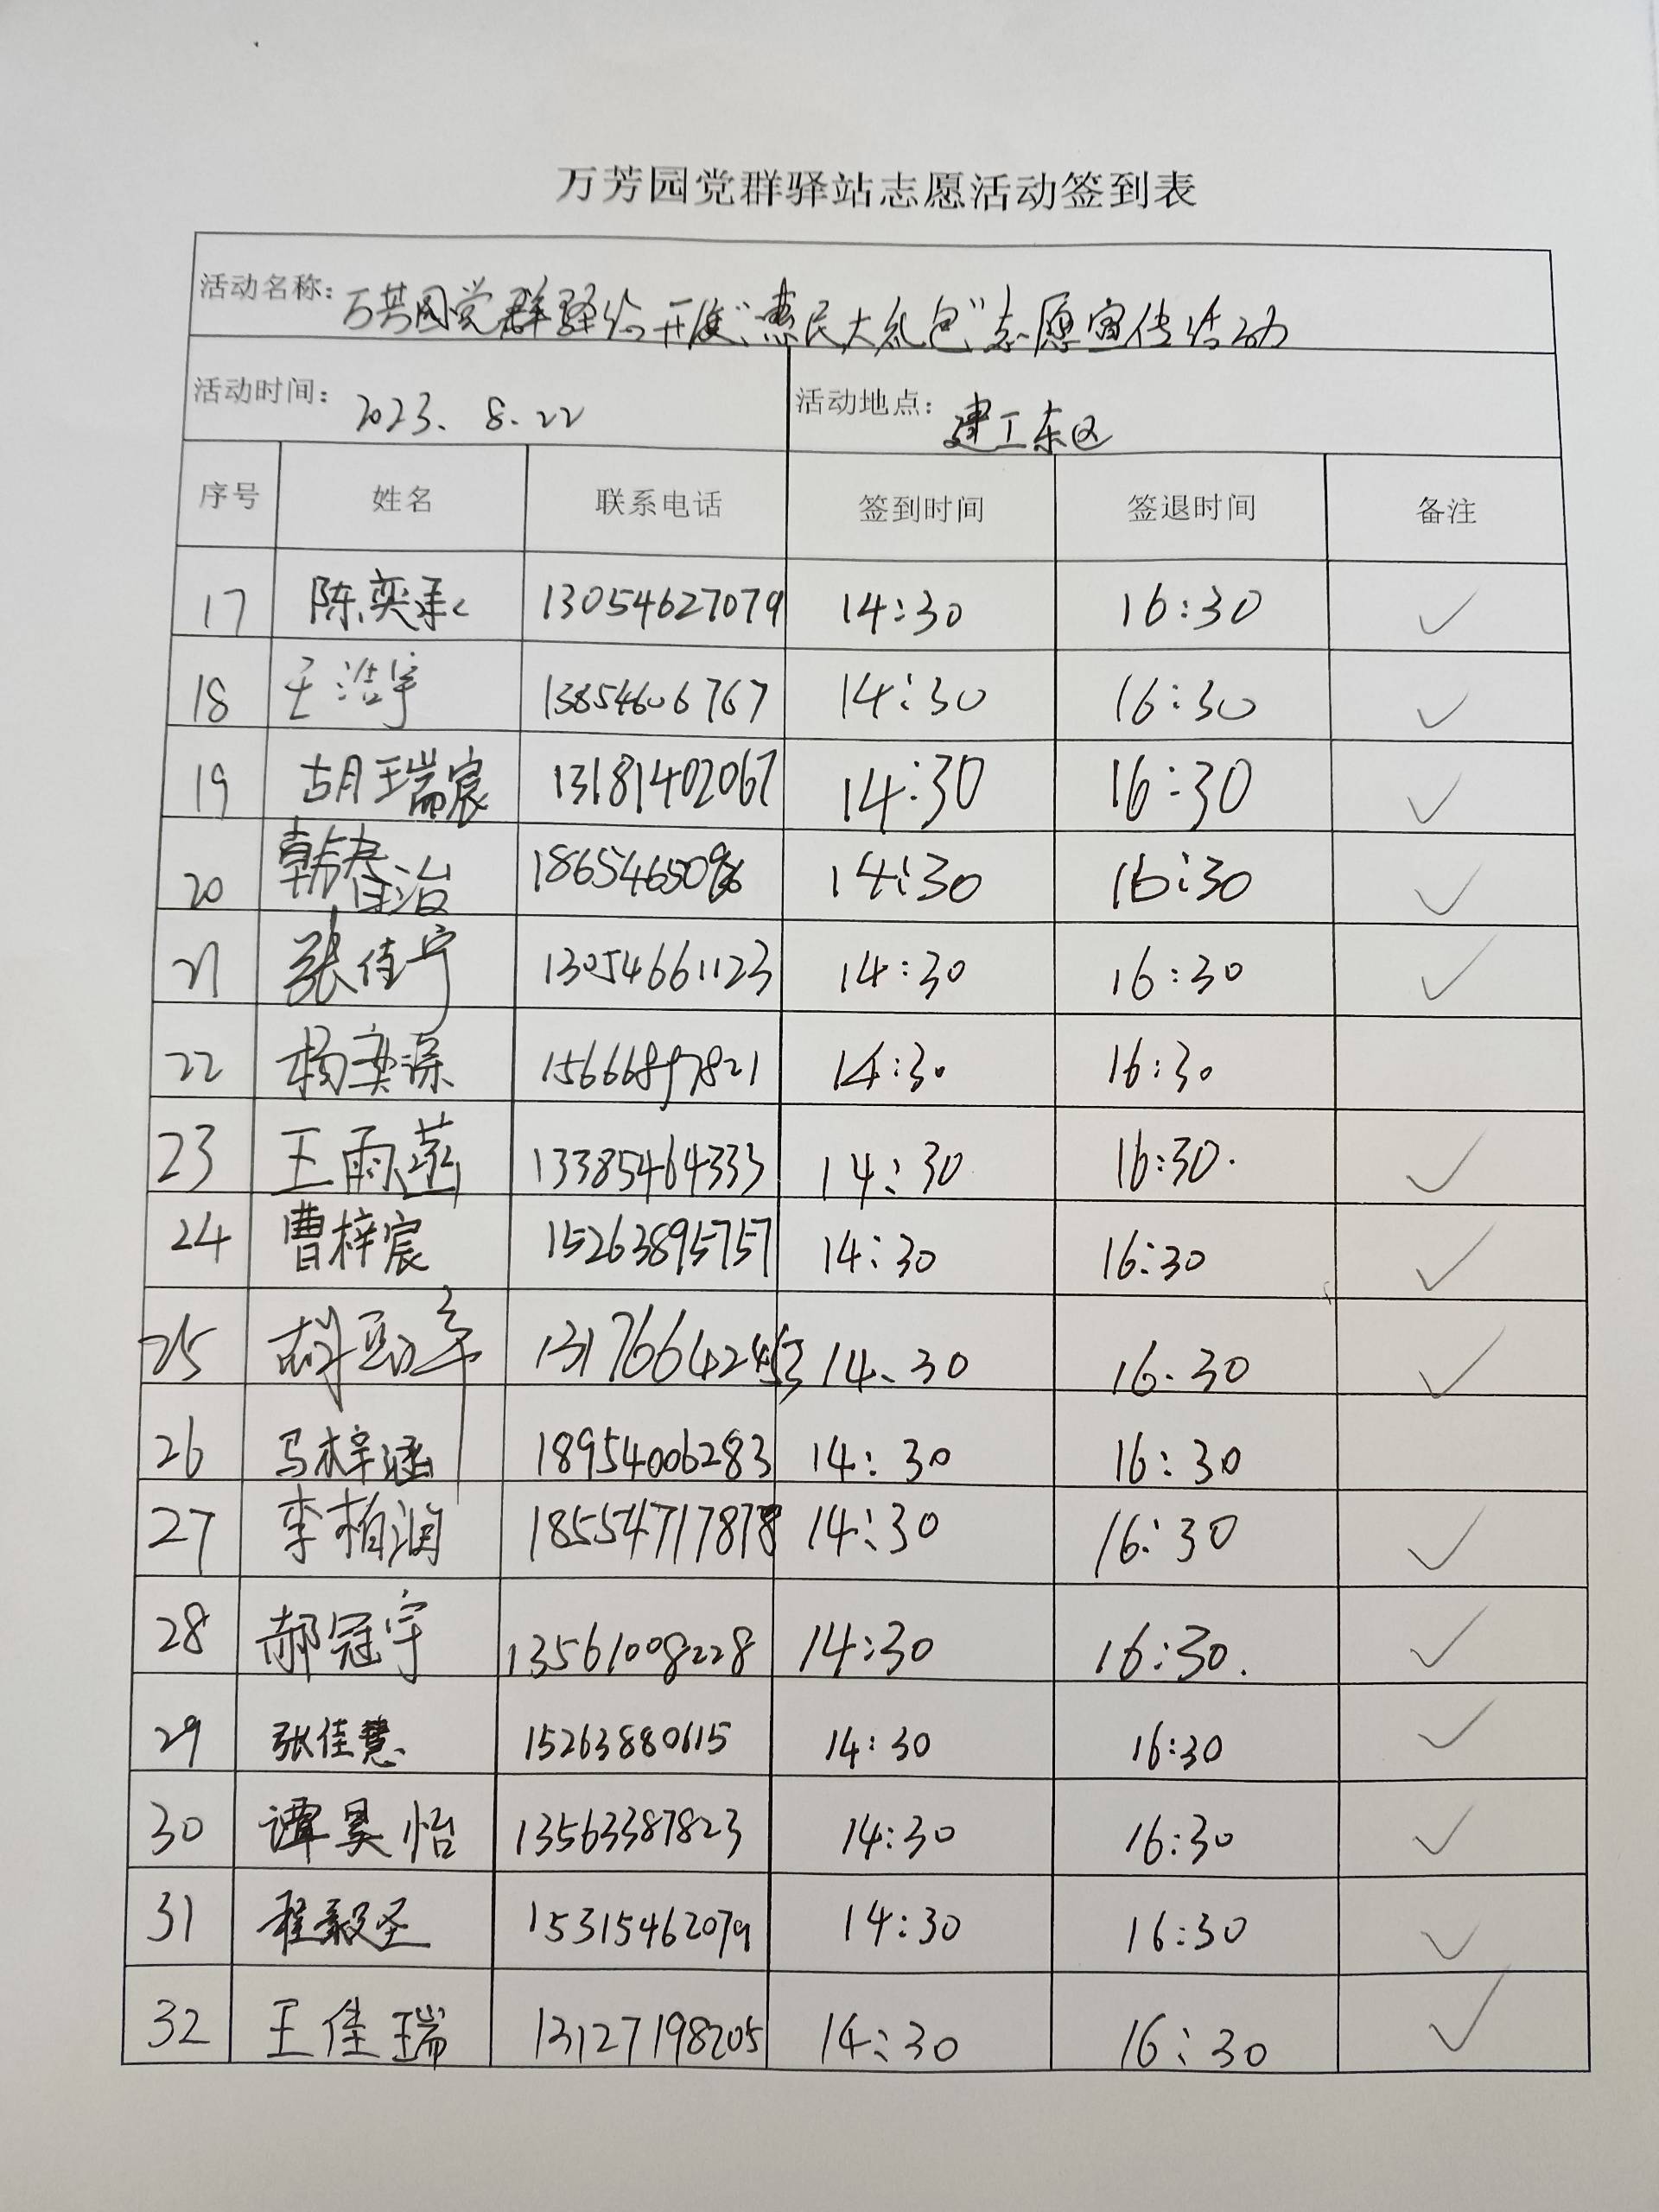 万芳园党群驿站志愿活动签到表
活动名称：万芳园党群驿站开展“惠民大礼包”志愿宣传活动
活动时间：2023.8.22 活动地点：建工东区
序号 姓名 联系电话 签到时间 签退时间 备注
17 陈奕承 13054627079 14:30 16:30 ✓
18 王浩宇 13854606767 14:30 16:30 ✓
19 胡瑞宸 13181402067 14:30 16:30 ✓
20 韩春治 14:30 16:30 ✓
21 张佳宁 13054661123 14:30 16:30 ✓
22 杨奕深 15666897821 14:30 16:30
23 王雨菡 13385464333 14:30 16:30. ✓
24 曹梓宸 15263895757 14:30 16:30 ✓
25 14.30 16.30 ✓
26 马梓涵 18954006283 14:30 16:30
27 李柏润 18554717878 14:30 16:30 ✓
28 郝冠宇 13561008228 14:30 16:30. ✓
29 张佳慧 15263880615 14:30 16:30 ✓
30 谭昊怡 13563387823 14:30 16:30 ✓
31 程毅圣 15315462079 14:30 16:30 ✓
32 王佳瑞 13127198205 14:30 16:30 ✓